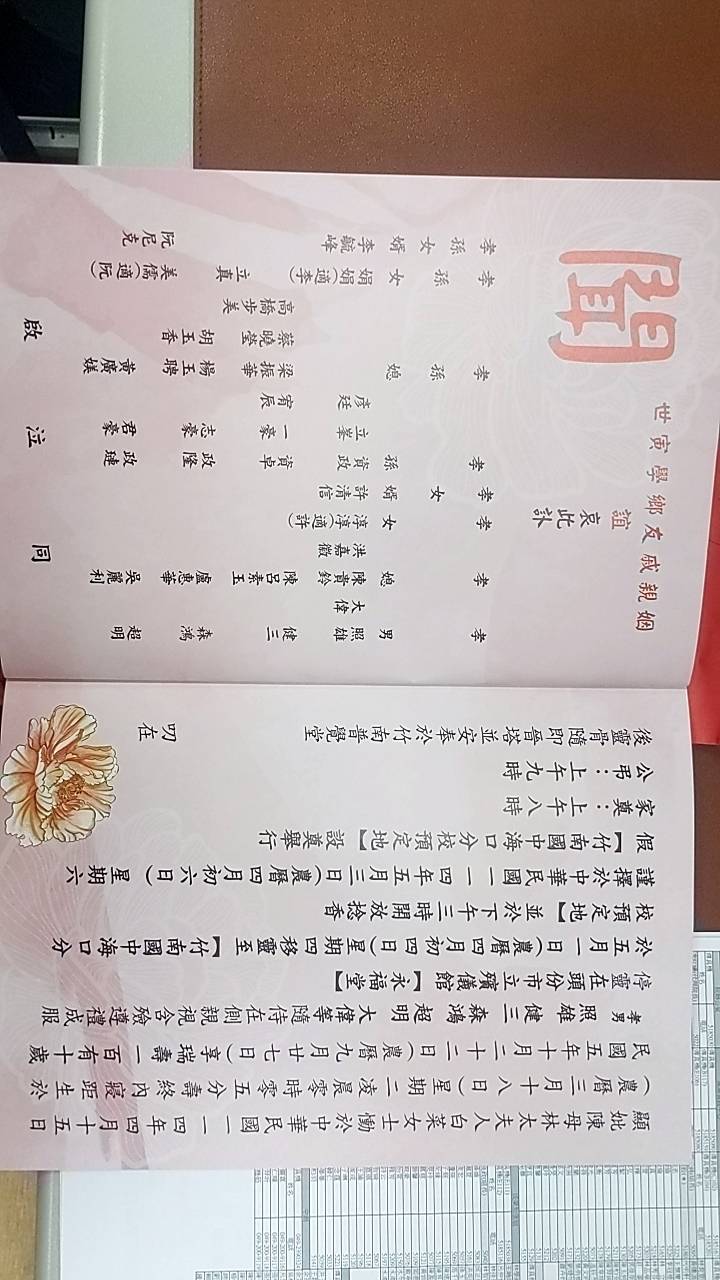 顯妣陳母林太夫人白菜女士慟於中華民國一一四年四月十五日
(農曆三月十八日)星期二凌晨零時零五分壽終內寢距生於
民國五年十月二十二日(農曆九月廿七日)享瑞壽一百有十歲
孝男 照雄 健三 森鴻 超明 大偉等隨侍在側親視含殮遵禮成服
停靈在頭份市立殯儀館【永福堂】
於五月一日(農曆四月初四日)星期四移靈至【竹南國中海口分
校預定地】並於下午三時開放捻香
謹擇於中華民國一一四年五月三日(農曆四月初六日)星期六
假【竹南國中海口分校預定地】設奠舉行
家奠:上午八時
公弔:上午九時
後靈骨隨即晉塔並安奉於竹南普覺堂
叨在
姻親戚友鄉學寅世
誼
哀此訃
聞
孝男 照雄 健三 森鴻 超明
大偉
孝媳 陳貴鈴 陳呂素玉 盧惠華 吳麗利
洪嘉徽
孝女 淳淳(適許)
孝女婿 許清信
孝孫 資政 資卓 政隆 政璉
立峯 一豪 志豪 君豪
彥廷 宥辰
孝孫媳 梁振華 楊玉聘 黃廣媖
蔡曉瑩 胡玉香
高橋步美
孝孫女 娟娟(適李) 立真 美儒(適阮)
孝孫女婿 李毓峰 阮尼克
同泣啟